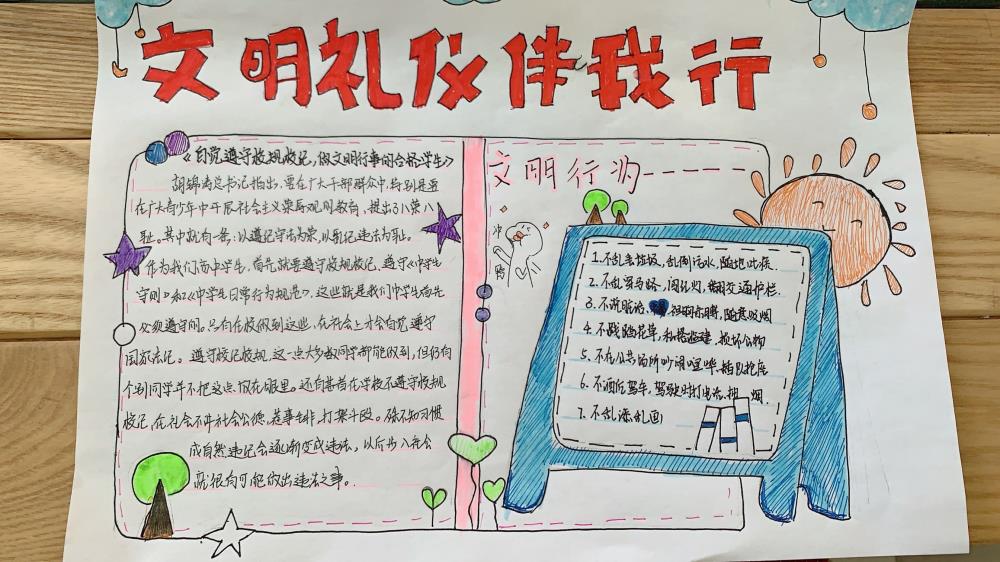 文明礼仪伴我行
《自觉遵守校规校记，做文明行事的合格学生》
胡锦涛总书记指出，要在广大干部群众中，特别是要
在广大青少年中开展社会主义荣辱观教育，提出了八荣八
耻。其中就有一条：以遵纪守法为荣，以乱记违法为耻。
作为我们高中学生，首先就要遵守校规校记，遵守《中学生
守则》和《中学生日常行为规范》，这些就是我们中学生首先
必须遵守的。只有在校做到这些，在社会上才会自觉遵守
国家法记。遵守校记校规，这一点大多数同学都能做到，但仍有
个别同学并不把这点放在眼里。还有甚者在学校不遵守校规
校记，在社会不讲社会公德，惹事生非，打架斗殴。殊不知习惯
成自然违记会逐渐变成违法，以后步入社会
就很有可能做出违法之事。
文明行为
冲
鸭
1.不乱丢垃圾，乱倒污水，随地吐痰
2.不乱穿马路，闯红灯，翻交通护栏
3.不说脏话，随意吸烟
4.不践踏花草，私搭乱建，损坏公物
5.不在公共场所吵闹喧哗，插队抢座
6.不酒后驾车，驾驶时打电话，抽烟
7.不乱涂乱画